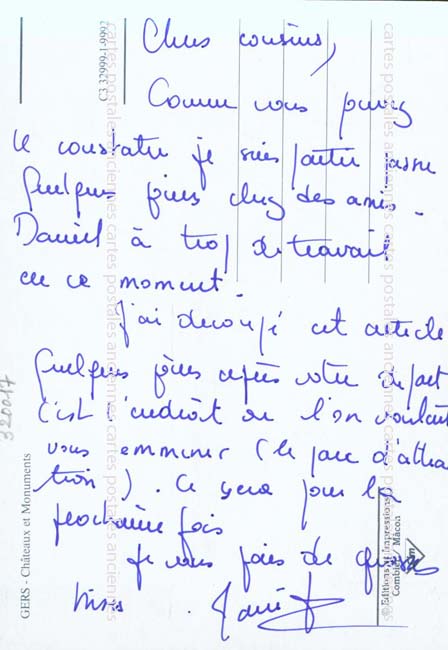 Chers cousins,
Comme vous pouvez
le constater je suis partie passer
quelques jours chez des amis.
Daniel à trop de travail
en ce moment.
J'ai decoupé cet article
quelques jours après votre depart
c'est l'endroit ou l'on voulait
vous emmener (le parc d'attrac
tion). Ce sera pour la
prochaine fois
Je vous fais de grosses
bises.
C3 32999-1-9992
GERS - Châteaux et Monuments
320017
© Editions et Impressions
Combier Mâcon
cartes postales anciennes cartes postales anciennes cartes postales anciennes
cartes postales anciennes cartes postales anciennes cartes postales anciennes